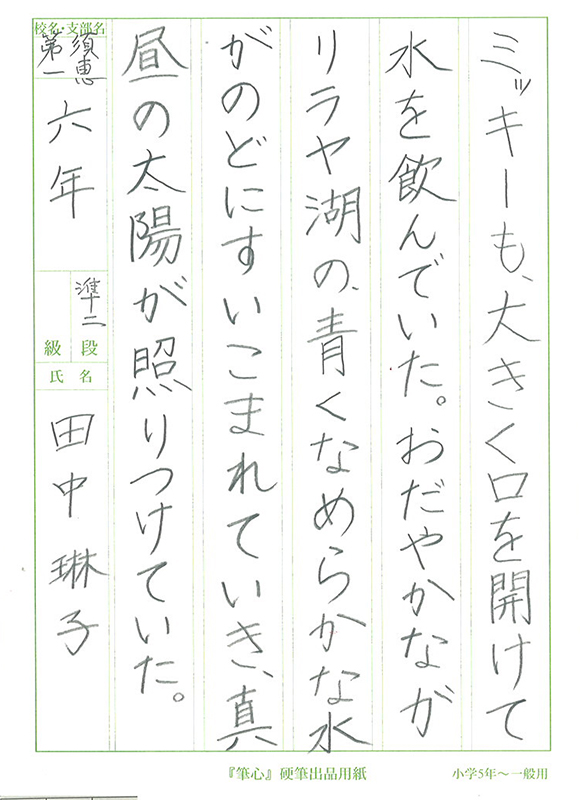 ミッキーも、大きく口を開けて
水を飲んでいた。おだやかなが
リラヤ湖の、青くなめらかな水
がのどにすいこまれていき、真
昼の太陽が照りつけていた。
校名・支部名
須恵
第一
六年
準二
段
級
氏名
田中琳子
『筆心』硬筆出品用紙
小学5年～一般用